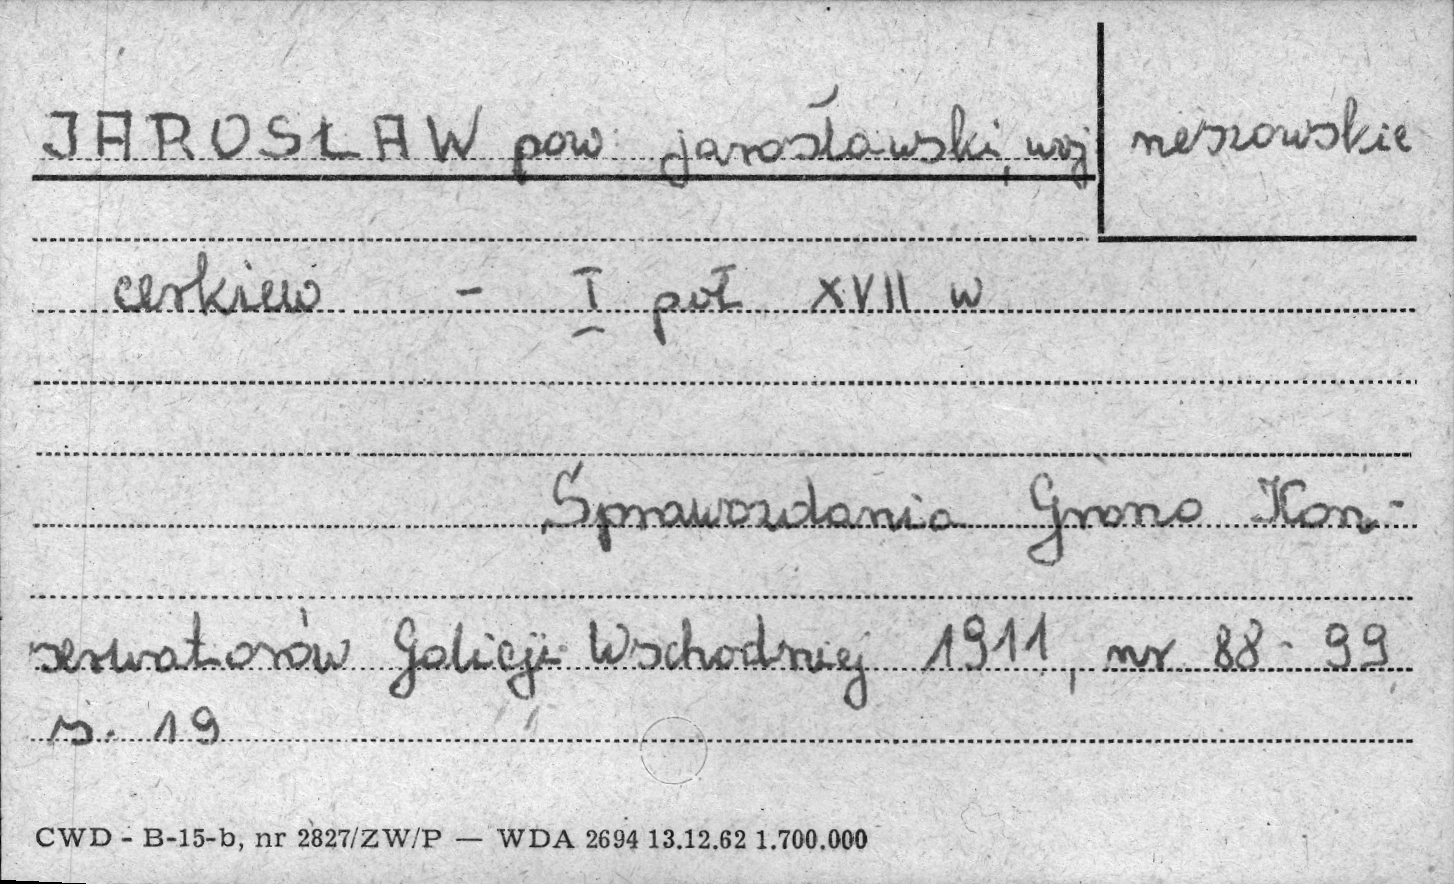 JAROSŁAW pow. jarosławski, woj rzeszowskie
cerkiew - I poł XVII w
Sprawozdania Grona Kon-
serwatorów Galicji Wschodniej 1911, nr 88-99,
s. 19
CWD - B-15-b, nr 2827/ZW/P — WDA 2694 13.12.62 1.700.000